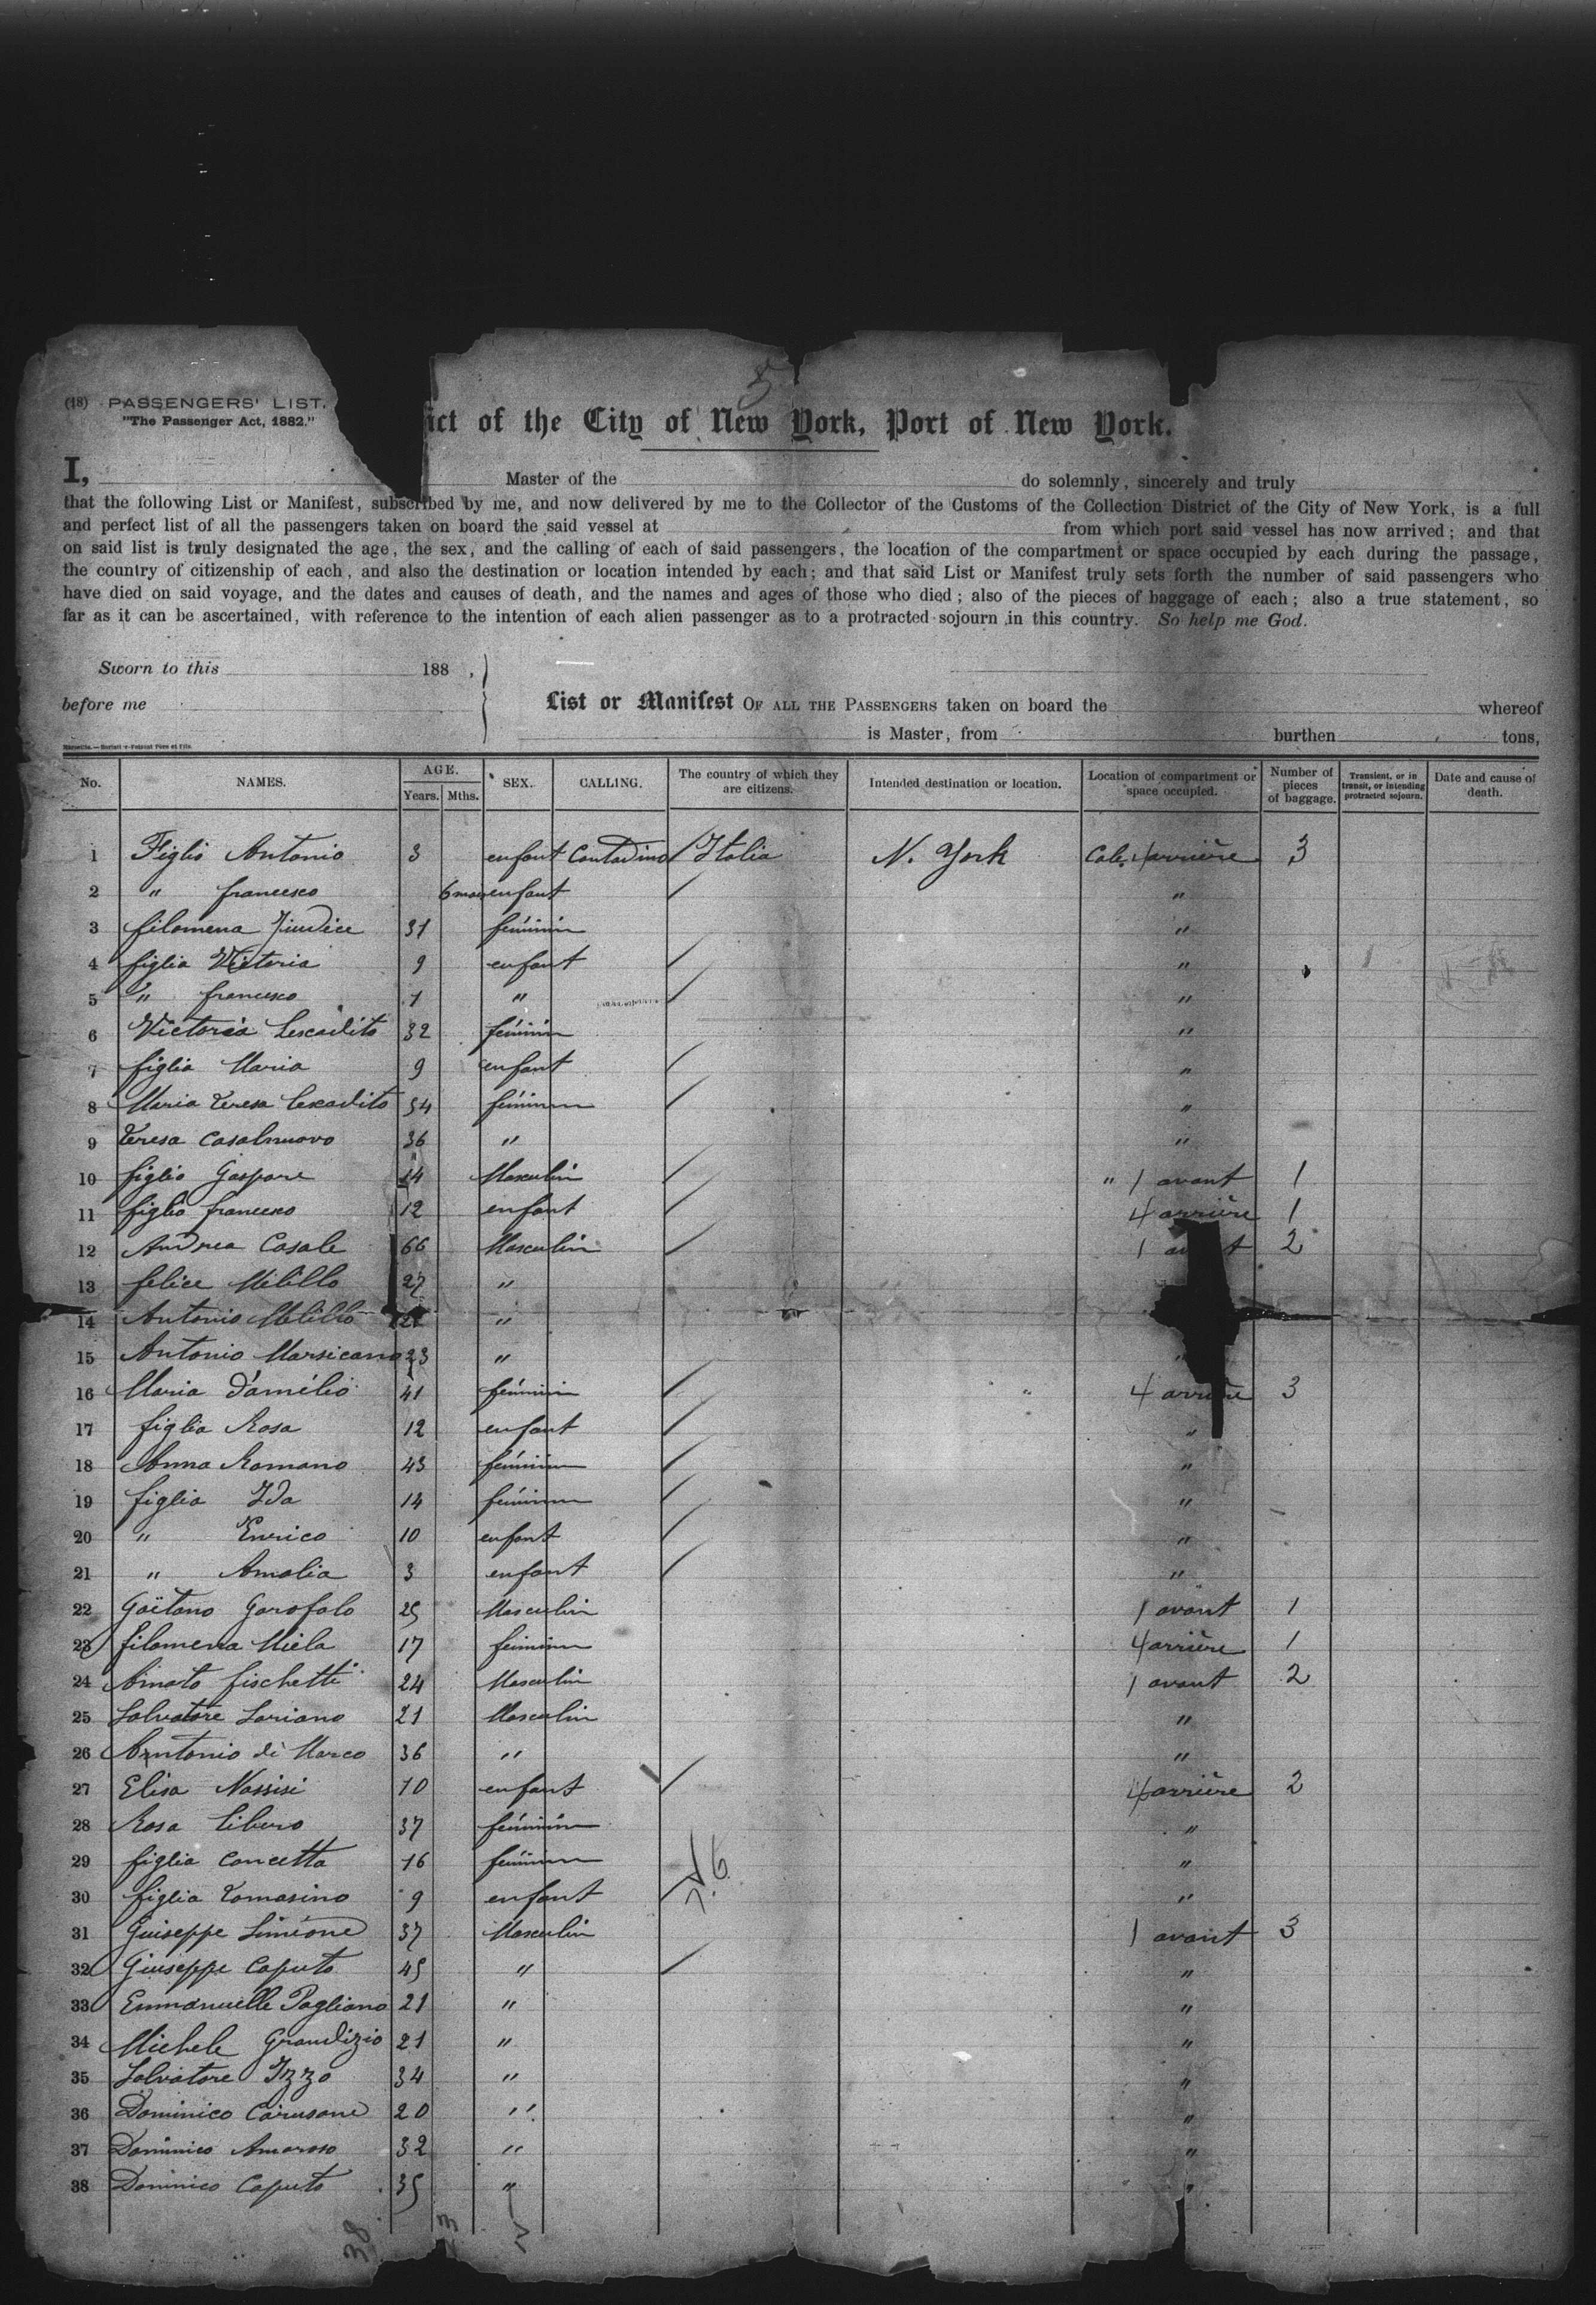 5
(18) PASSENGERS' LIST.
"The Passenger Act, 1882."
ict of the City of New York, Port of New York.
I, Master of the do solemnly, sincerely and truly
that the following List or Manifest, subscribed by me, and now delivered by me to the Collector of the Customs of the Collection District of the City of New York, is a full
and perfect list of all the passengers taken on board the said vessel at from which port said vessel has now arrived; and that
on said list is truly designated the age, the sex, and the calling of each of said passengers, the location of the compartment or space occupied by each during the passage,
the country of citizenship of each, and also the destination or location intended by each; and that said List or Manifest truly sets forth the number of said passengers who
have died on said voyage, and the dates and causes of death, and the names and ages of those who died; also of the pieces of baggage of each; also a true statement, so
far as it can be ascertained, with reference to the intention of each alien passenger as to a protracted sojourn in this country. So help me God.
Sworn to this 188 ,
before me List or Manifest OF ALL THE PASSENGERS taken on board the whereof
is Master, from burthen tons,
No. NAMES. AGE. Years. Mths. SEX. CALLING. The country of which they are citizens. Intended destination or location. Location of compartment or space occupied. Number of pieces of baggage. Transient, or in transit, or intending protracted sojourn. Date and cause of death.
1 Figlio Antonio 3 enfant Contadino Italia N. York Cale 4 arrière 3
2 " francesco 6 enfant "
3 filomena Giudice 31 féminin "
4 figlia Victoria 9 enfant "
5 " francesco 1 " "
6 Victoria 32 féminin "
7 figlia Maria 9 enfant "
8 Maria Teresa 34 féminin "
9 Teresa Casalnuovo 36 " "
10 figlio Gaspare 14 Masculin " 1 avant 1
11 figlio francesco 12 enfant 4 arrière 1
12 Andrea Casale 66 Masculin 1 a t 2
13 felice Melillo 27 "
14 Antonio Melillo "
15 Antonio Marsicano 23 " "
16 Maria d'amélio 41 féminin " 4 arrière 3
17 figlia Rosa 12 enfant "
18 Anna Romano 43 féminin "
19 figlia Ida 14 féminin "
20 " Enrico 10 enfant "
21 " Amalia 3 enfant "
22 Gaëtano Garofalo 25 Masculin 1 avant 1
23 filomena Miela 17 féminin 4 arrière 1
24 Amato fischetti 24 Masculin 1 avant 2
25 Salvatore Soriano 21 Masculin "
26 Antonio di Marco 36 " "
27 Elisa Nassisi 10 enfant 4 arrière 2
28 Rosa Libero 37 féminin "
29 figlia Concetta 16 féminin "
30 figlia Tomasino 9 enfant "
31 Guiseppe Siméone 37 Masculin 1 avant 3
32 Giuseppe Caputo 45 " "
33 Emmanuelle Pagliano 21 " "
34 Michele Grandizio 21 " "
35 Salvatore Izzo 34 " "
36 Dominico Carusone 20 " "
37 Dominico Amoroso 32 " "
38 Dominico Caputo 35 " "
38